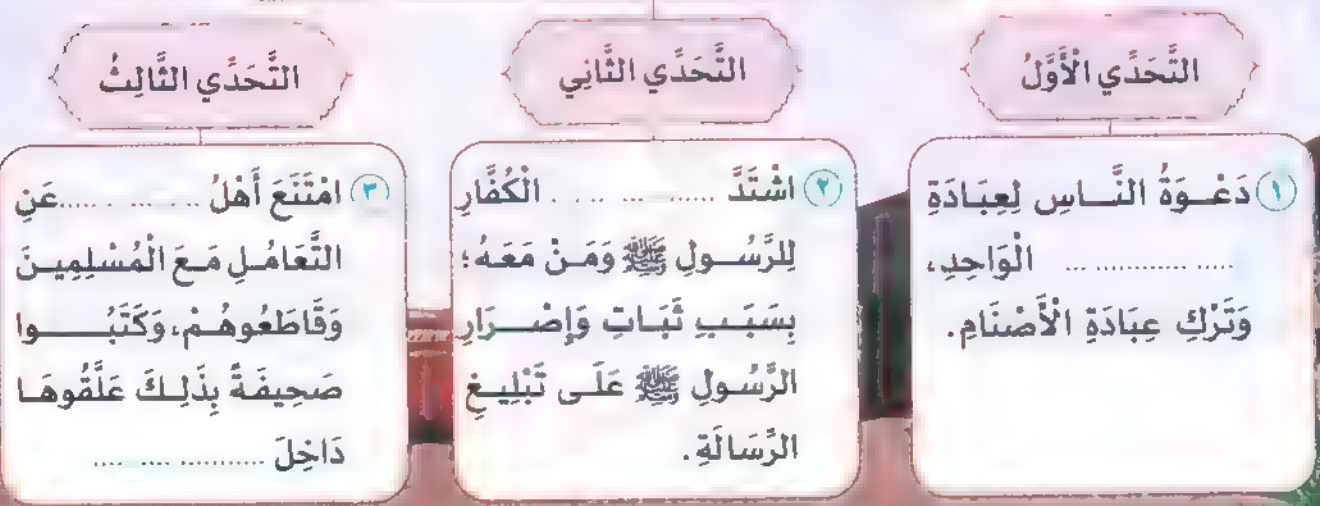 التَّحَدِّي الْأَوَّلُ
١ دَعْوَةُ النَّاسِ لِعِبَادَةِ
.................. الْوَاحِدِ،
وَتَرْكِ عِبَادَةِ الْأَصْنَامِ.
التَّحَدِّي الثَّانِي
٢ اشْتَدَّ .................. الْكُفَّارِ
لِلرَّسُولِ ﷺ وَمَنْ مَعَهُ؛
بِسَبَبِ ثَبَاتِ وَإِصْرَارِ
الرَّسُولِ ﷺ عَلَى تَبْلِيغِ
الرِّسَالَةِ.
التَّحَدِّي الثَّالِثُ
٣ امْتَنَعَ أَهْلُ .................. عَنِ
التَّعَامُلِ مَعَ الْمُسْلِمِينَ
وَقَاطَعُوهُمْ، وَكَتَبُوا
صَحِيفَةً بِذَلِكَ عَلَّقُوهَا
دَاخِلَ ..................